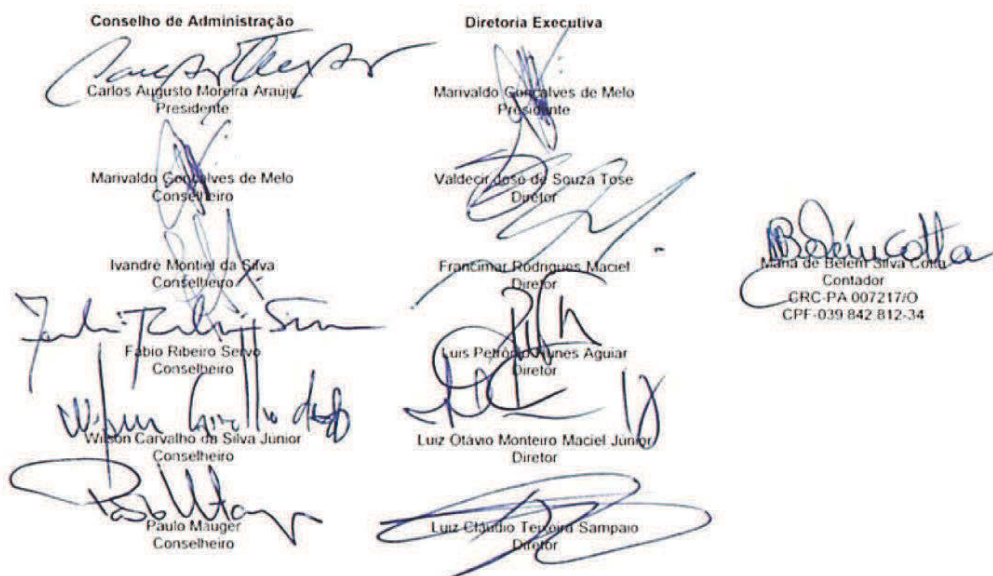 Conselho de Administração
Carlos Augusto Moreira Araújo
Presidente
Marivaldo Gonçalves de Melo
Conselheiro
Ivandré Montiel da Silva
Conselheiro
Fábio Ribeiro Servo
Conselheiro
Wilson Carvalho da Silva Júnior
Conselheiro
Paulo Mauger
Conselheiro
Diretoria Executiva
Marivaldo Gonçalves de Melo
Presidente
Valdecir José de Souza Tose
Diretor
Francimar Rodrigues Maciel
Diretor
Luis Petrônio Nunes Aguiar
Diretor
Luiz Otávio Monteiro Maciel Júnior
Diretor
Luiz Cláudio Teixeira Sampaio
Diretor
Maria de Belém Silva Cotta
Contador
CRC-PA 007217/O
CPF-039 842 812-34